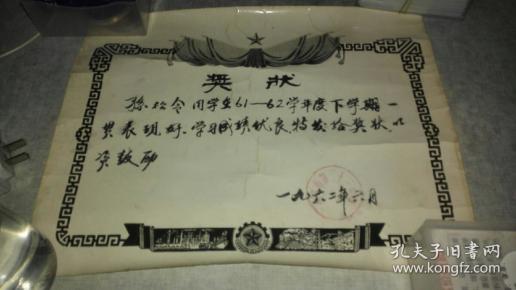 奖状
孙 同学在61—62学年度下学期一
贯表现好、学习成绩优良特发给奖状。以
资鼓励
一九六二年六月
孔夫子旧书网